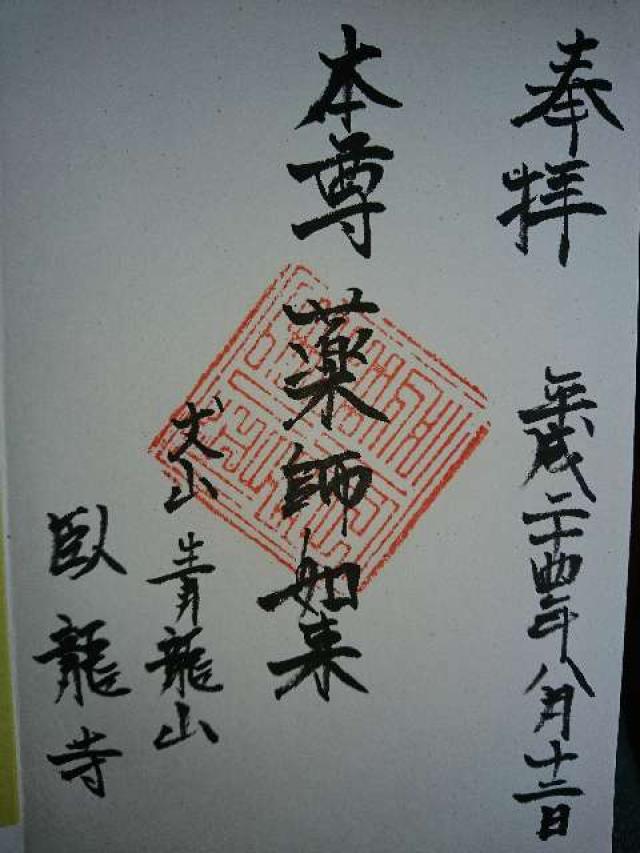 奉拝 平成二十四年八月十三日
本尊 薬師如来
犬山 青龍山
臥龍寺